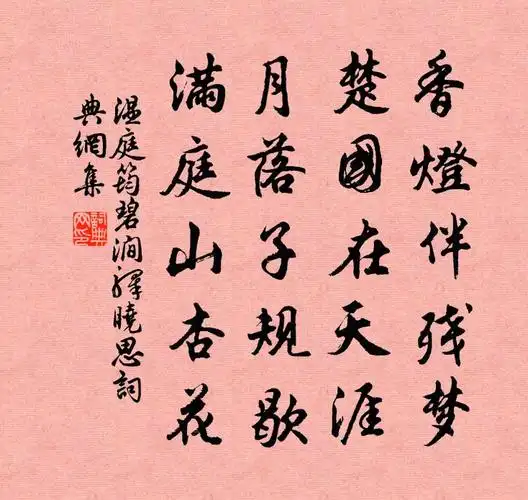 香燈伴残梦
楚國在天涯
月落子規歇
滿庭山杏花
温庭筠碧澗驛曉思詞
典網集